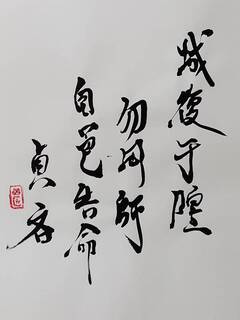 城復于隍
勿用師
自邑告命
貞吝